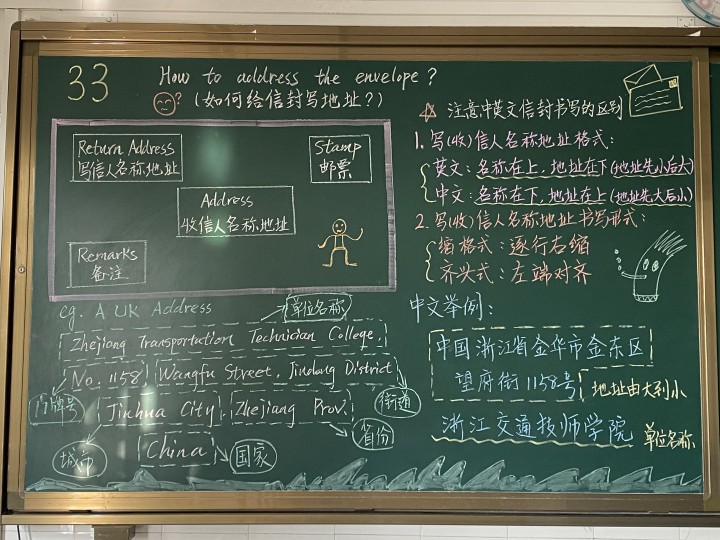 33
How to address the envelope?
?(如何给信封写地址?)
Return Address
写信人名称地址
Stamp
邮票
Address
收信人名称地址
Remarks
备注
eg. A UK Address
单位名称
Zhejiang Transportation Technician College.
No. 1158, Wangfu Street, Jindong District
门牌号
Jinhua City, Zhejiang Prov.
街道
省份
城市
China
国家
注意中英文信封书写的区别
1. 写(收)信人名称地址格式:
英文:名称在上,地址在下(地址先小后大)
中文:名称在下,地址在上(地址先大后小)
2. 写(收)信人名称地址书写形式:
缩格式:逐行右缩
齐头式:左端对齐
中文举例:
中国浙江省金华市金东区
望府街1158号
地址由大到小
浙江交通技师学院
单位名称